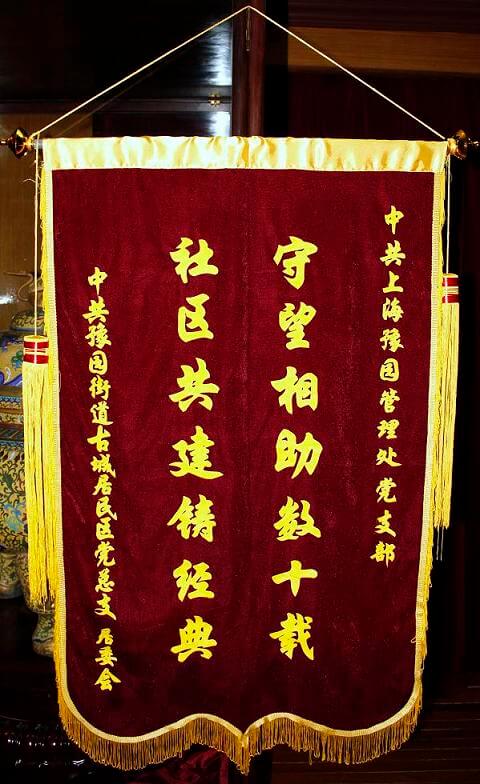 中共上海豫园管理处党支部
守望相助数十载
社区共建铸经典
中共豫园街道古城居民区党总支 居委会